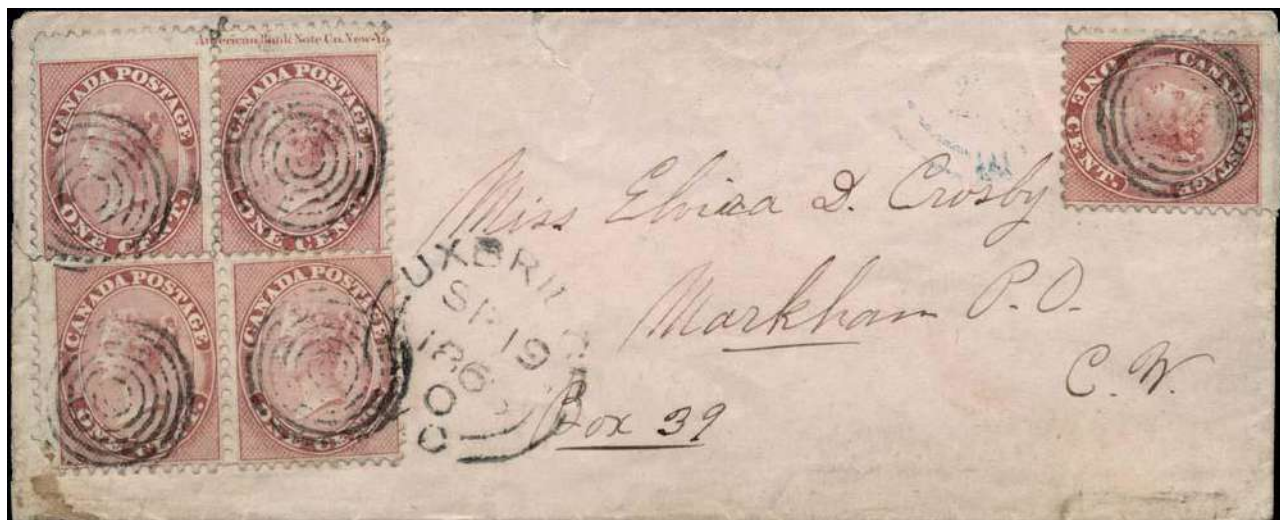 American Bank Note Co. New-Yo
CANADA POSTAGE
ONE CENT.
CANADA POSTAGE
ONE CENT.
CANADA POSTAGE
ONE CENT.
CANADA POSTAGE
ONE CENT.
CANADA POSTAGE
ONE CENT.
UXBRI
SP 19
186
Miss Elvira D. Crosby
Markham P.O.
C. W.
Box 39